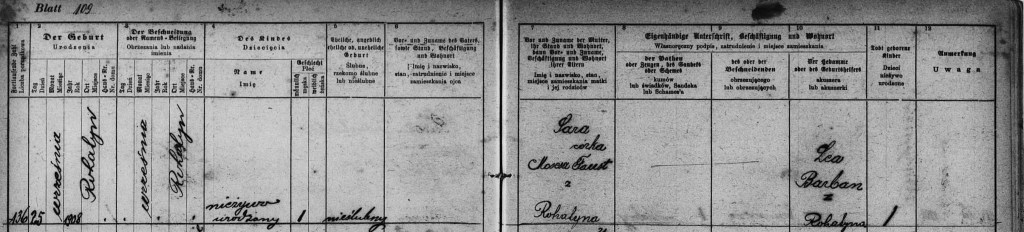 Blatt 109
1 2 3 4 5 6 7 8 9 10 11 12
Fortlaufende Zahl
Liczba porządkowa
Der Geburt
Urodzenia
Tag Dzień
Monat Miesiąc
Jahr Rok
Ort Miejsce
Der Beschneidung oder Namens-Beilegung
Obrzezania lub nadania imienia
Tag Dzień
Monat Miesiąc
Jahr Rok
Des Kindes
Dziecięcia
Name
Imię
Geschlecht
Płeć
männlich
męska
weiblich
żeńska
Eheliche, angeblich eheliche ob. uneheliche Geburt
Ślubne, rzekomo ślubne lub nieślubne
Vor- und Zuname des Vaters, sowie Stand, Beschäftigung und Wohnort
Imię i nazwisko, stan, zatrudnienie i miejsce zamieszkania ojca
Vor und Zuname der Mutter, ihr Stand und Wohnort, dann Vor- und Zuname, Beschäftigung und Wohnort ihrer Eltern
Imię i nazwisko, stan, miejsce zamieszkania matki i jej rodziców
Eigenhändige Unterschrift, Beschäftigung und Wohnort
Własnoręczny podpis, zatrudnienie i miejsce zamieszkania
der Pathen oder Zeugen, des Sandeks oder Schames
kumów lub świadków, Sandeka lub Schames'a
des oder der Beschneidenden
obrzezującego lub obrzezujących
der Hebamme oder des Geburtshelfers
akuszera lub akuszerki
Todt geborene Kinder
Dzieci nieżywo urodzone
Anmerkung
Uwaga
136 25 września 1908 Rohatyn
września Rohatyn
nieżywo
urodzony
1
nieślubny
Sara
córka
Faust
z
Rohatyna
Lea
Barban
z
Rohatyna
1